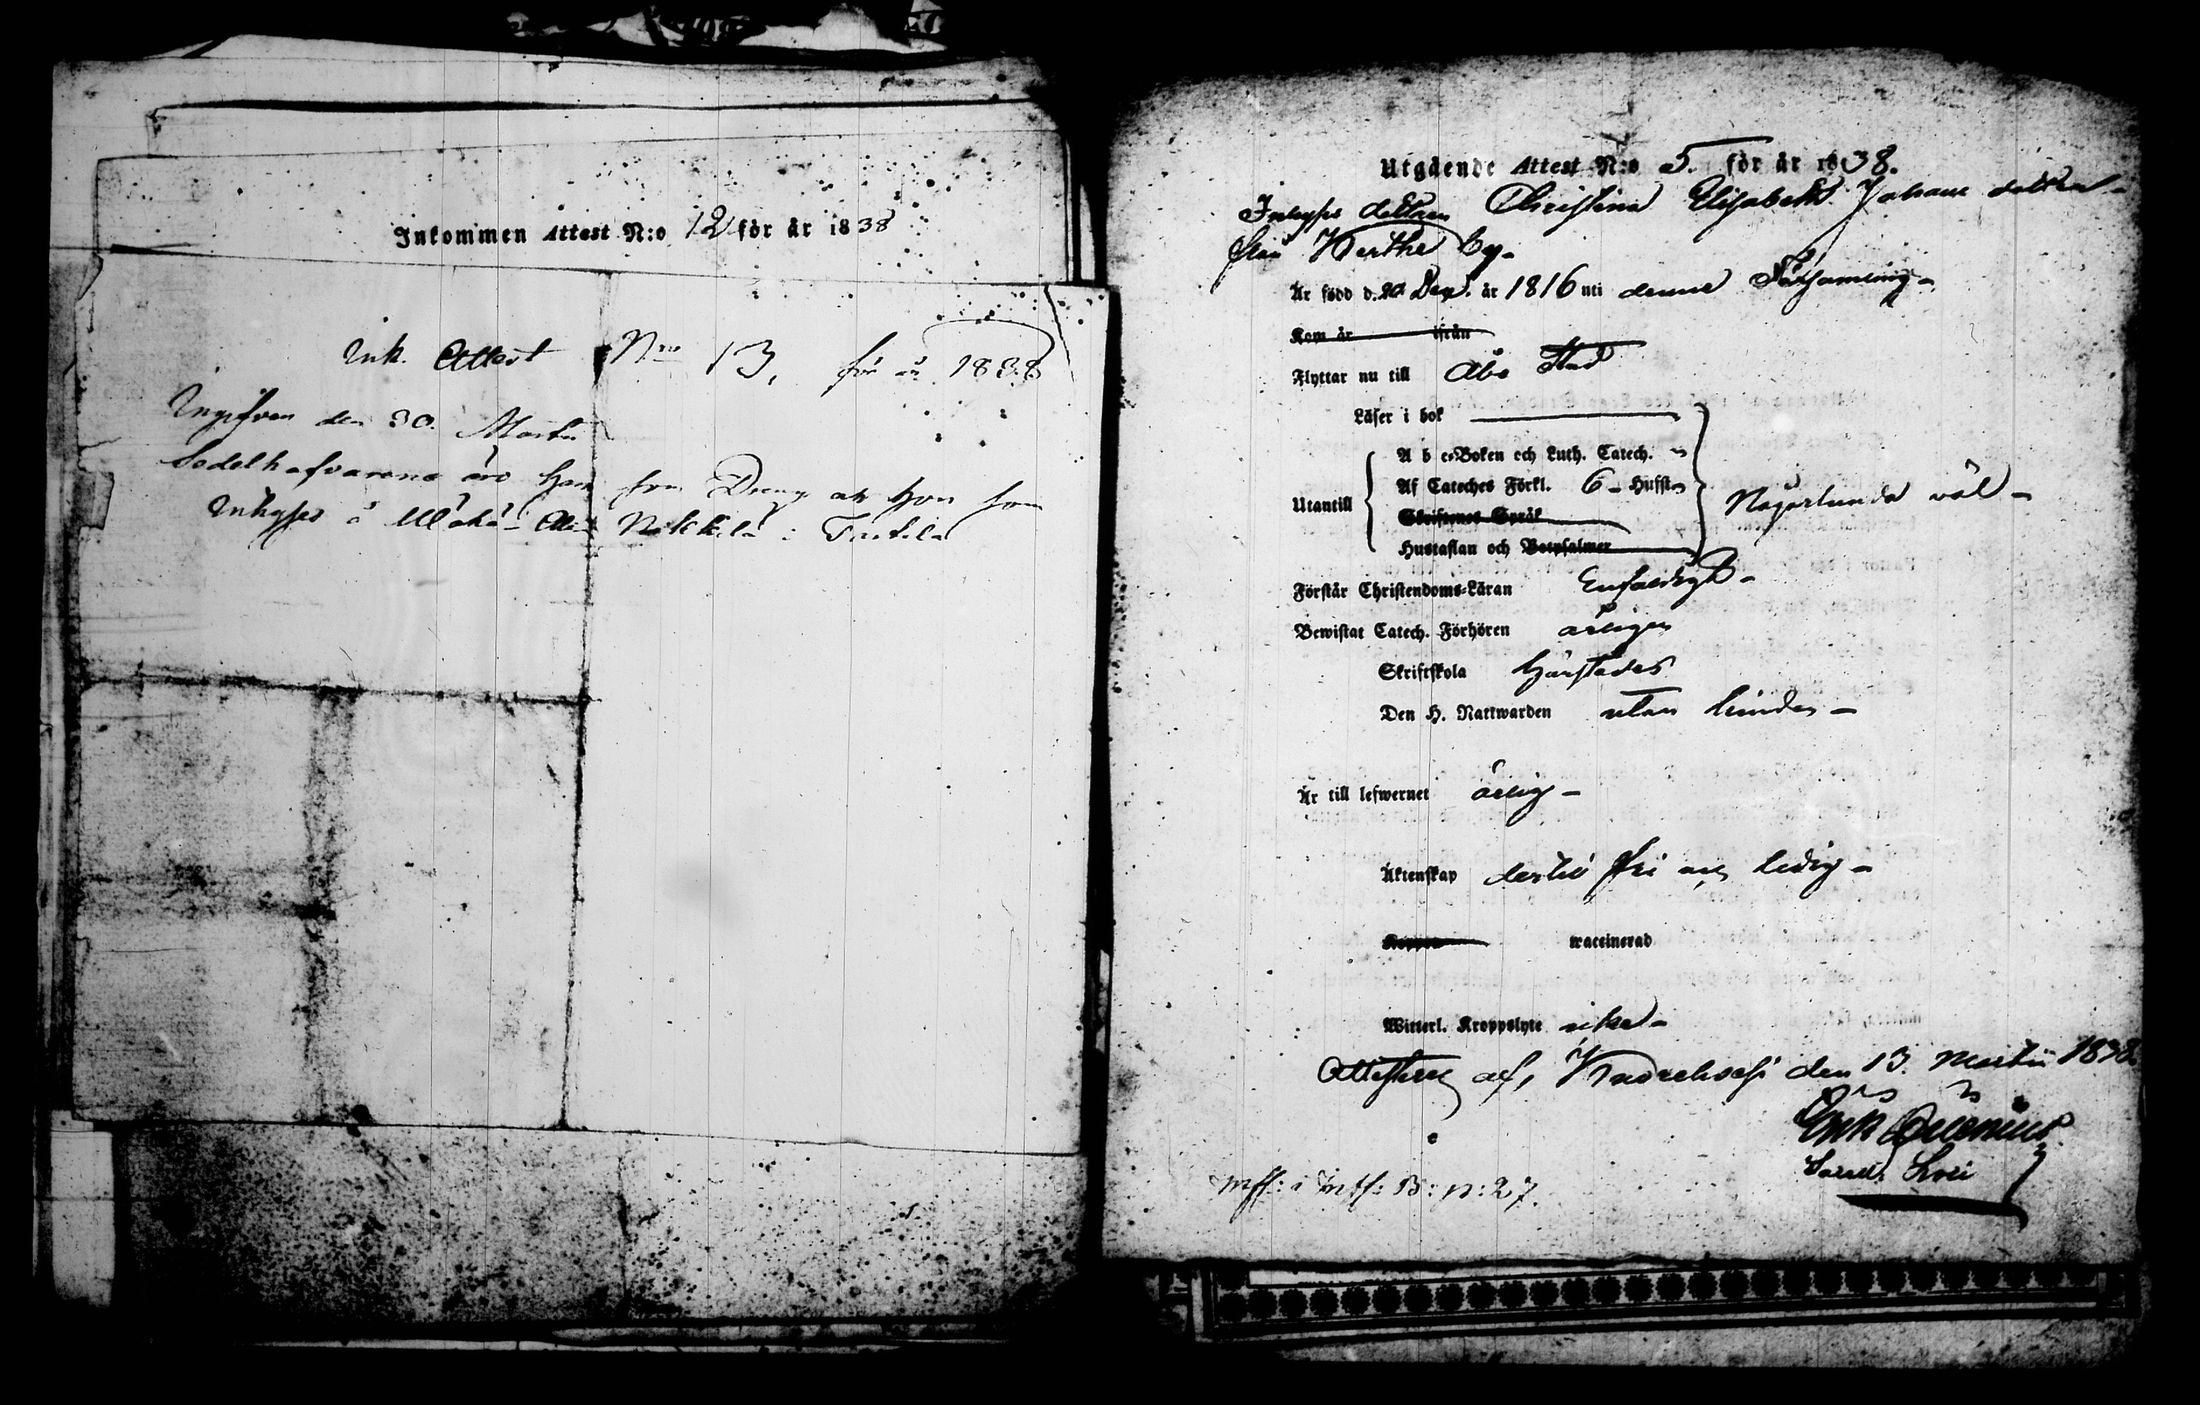 Inkommen Attest N:o 12 för år 1838
Ink. Attest N:ro 13, för år 1838
Ingifven den 30. Martii
Sedelhafvarene äro han som Dreng ok hon som
Inhyses å Ala Nikkilä i
Utgående Attest N:o 5. för år 1838.
Inhyses dottren Christina Elisabeth Johans dotter
från by.
Är född d. 20 Dec. år 1816 uti denne Församling
Kom år ifrån
Flyttar nu till Åbo Stad
Läser i bok
A b c-Boken och Luth. Catech.
Af Cateches Förkl. 6 Hufst
Utantill
Någorlunda väl
Skriftenes Språk
Hustaflan och Botpsalmer
Förstår Christendoms-Läran Enfaldigt
Bewistat Catech. Förhören årligen
Skriftskola härstädes
Den H. Nattwarden utan hinder
Är till lefwernet ärlig
Äktenskap dertill fri och ledig
Koppor vaccinerad
Witterl. Kroppslyte icke
Attesterar af, den 13. Martii 1838.
Erik
n:27.